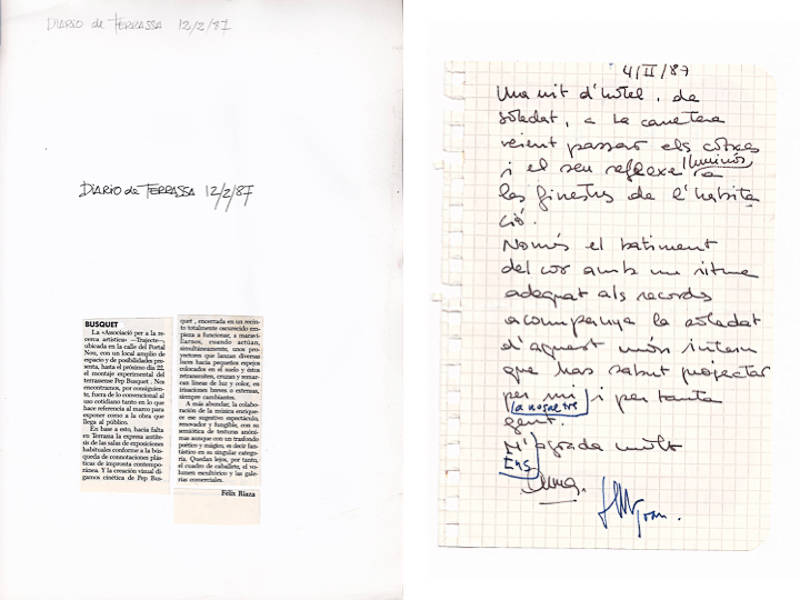 DIARIO de TERRASSA 12/2/87
DIARIO de TERRASSA 12/2/87
BUSQUET
La «Associació per a la re-
cerca artística» —Trajecte—,
ubicada en la calle del Portal
Nou, con un local amplio de
espacio y de posibilidades pre-
senta, hasta el próximo día 22,
el montaje experimental del
terrassense Pep Busquet. Nos
encontramos, por consiguien-
te, fuera de lo convencional al
uso cotidiano tanto en lo que
hace referencia al marco para
exponer como a la obra que
llega al público.
En base a esto, hacía falta
en Terrassa la expresa antíte-
sis de las salas de exposiciones
habituales conforme a la bús-
queda de connotaciones plás-
ticas de impronta contempo-
ránea. Y la creación visual di-
gamos cinética de Pep Bus-
quet, encerrada en un recin-
to totalmente oscurecido em-
pieza a funcionar, a maravi-
llarnos, cuando actúan,
simultáneamente, unos pro-
yectores que lanzan diversas
luces hacia pequeños espejos
colocados en el suelo y éstos
retransmiten, cruzan y remar-
can líneas de luz y color, en
irisaciones breves o extensas,
siempre cambiantes.
A más abundar, la colabora-
ción de la música enrique-
ce ese sugestivo espectáculo,
renovador y fungible, con su
semiótica de texturas anóni-
mas aunque con un trasfondo
poético y mágico, es decir fan-
tástico en su singular catego-
ría. Quedan lejos, por tanto,
el cuadro de caballete, el vo-
lumen escultórico y las gale-
rías comerciales.
Félix Riaza
4/II/87
Una nit d'hotel, de
soledat, a la carretera
veient passar els cotxes
i el seu reflexe lluminós a
les finestres de l'habita
ció.
Només el batiment
del cor amb un ritme
adequat als records
acompanya la soledat
d'aquest món intern
que has sabut projectar
per mi i per tanta
(a nosaltres
gent.
M'agrada molt
Ens
Joan.